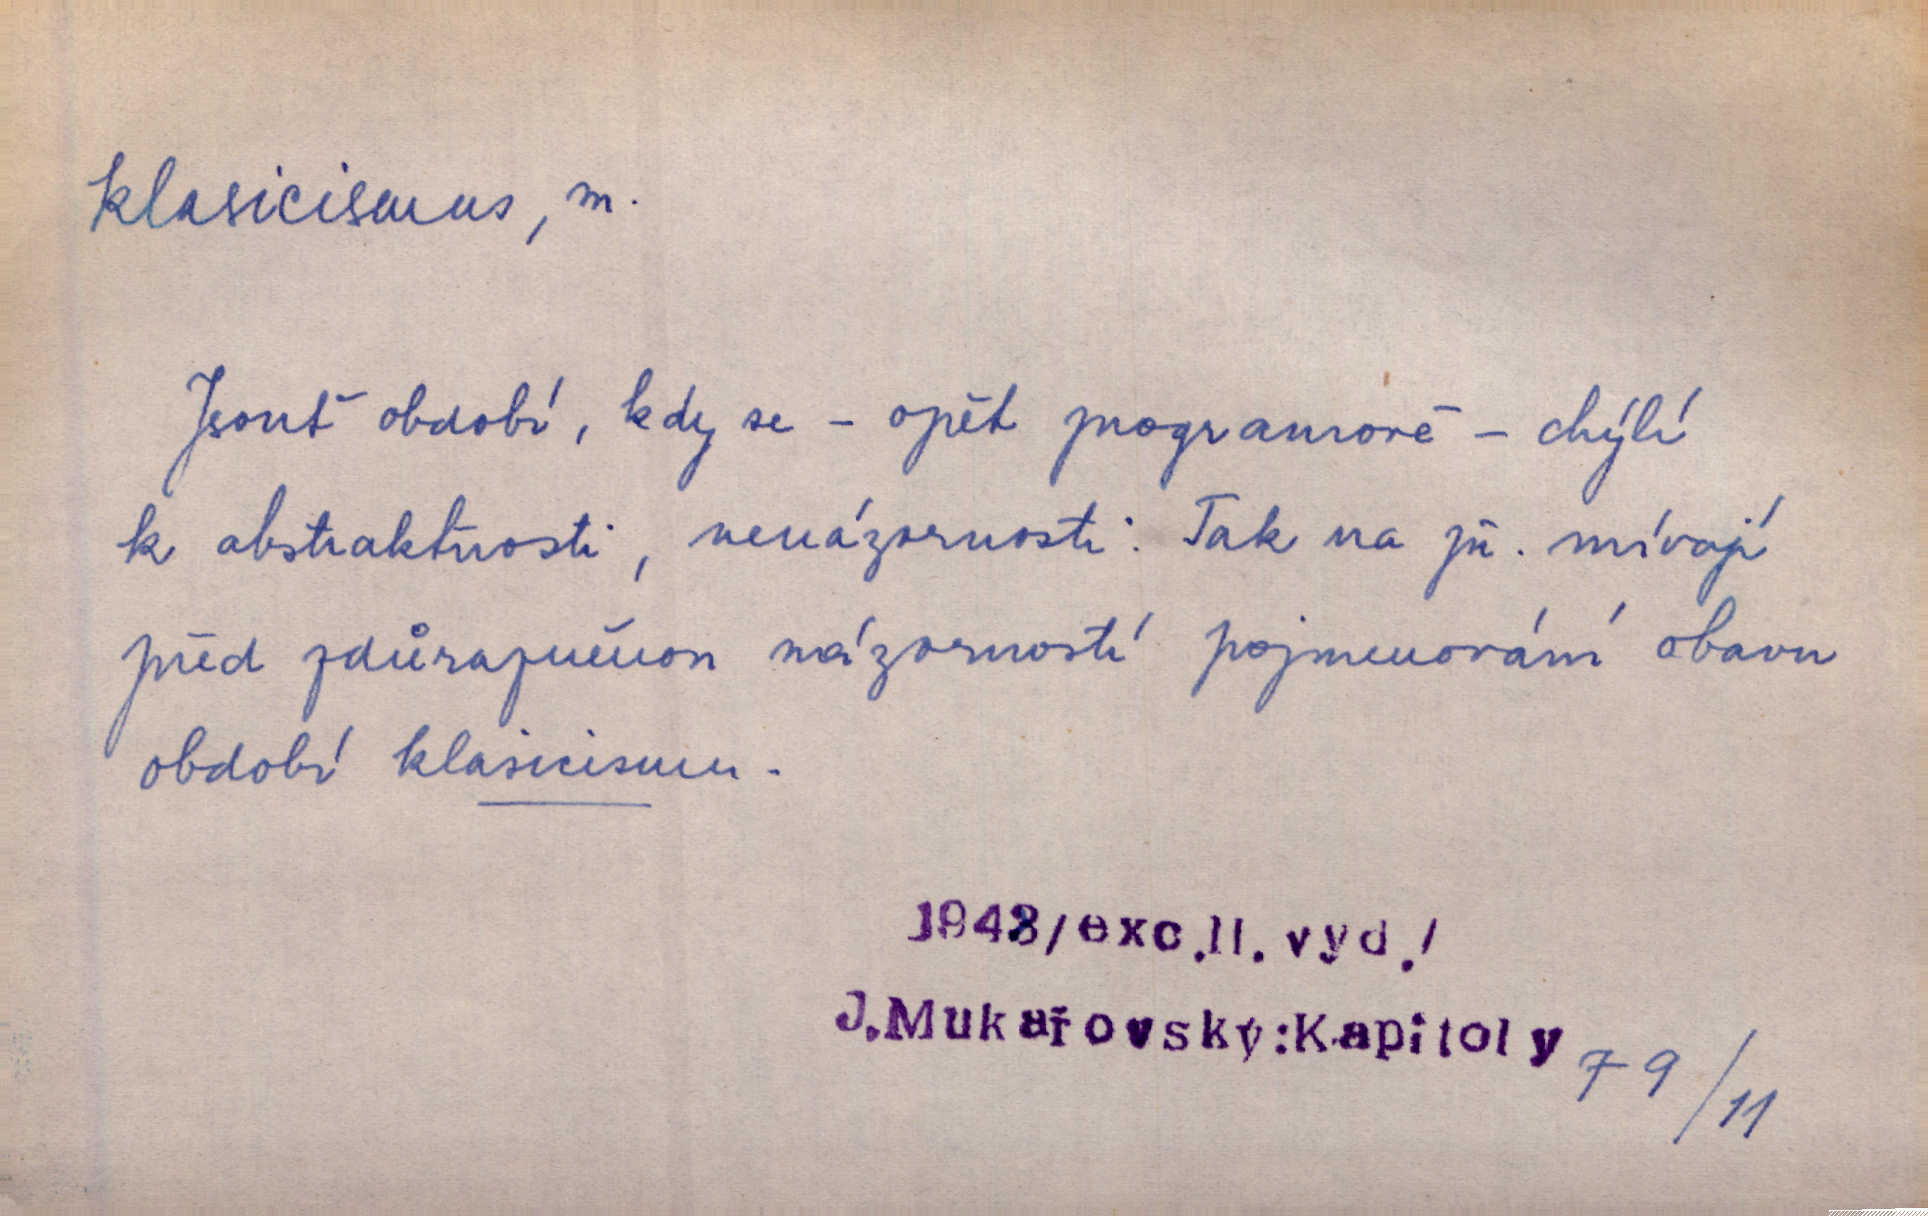 klasicismus, m.
Jsouť období, kdy se – opět programově – chýlí
k abstraktnosti, nenázornosti. Tak na př. mívají
před zdůrazněnou názorností pojmenování obavu
období klasicismu.
1948/exc.II.vyd./
J.Mukařovský:Kapitoly 79/11